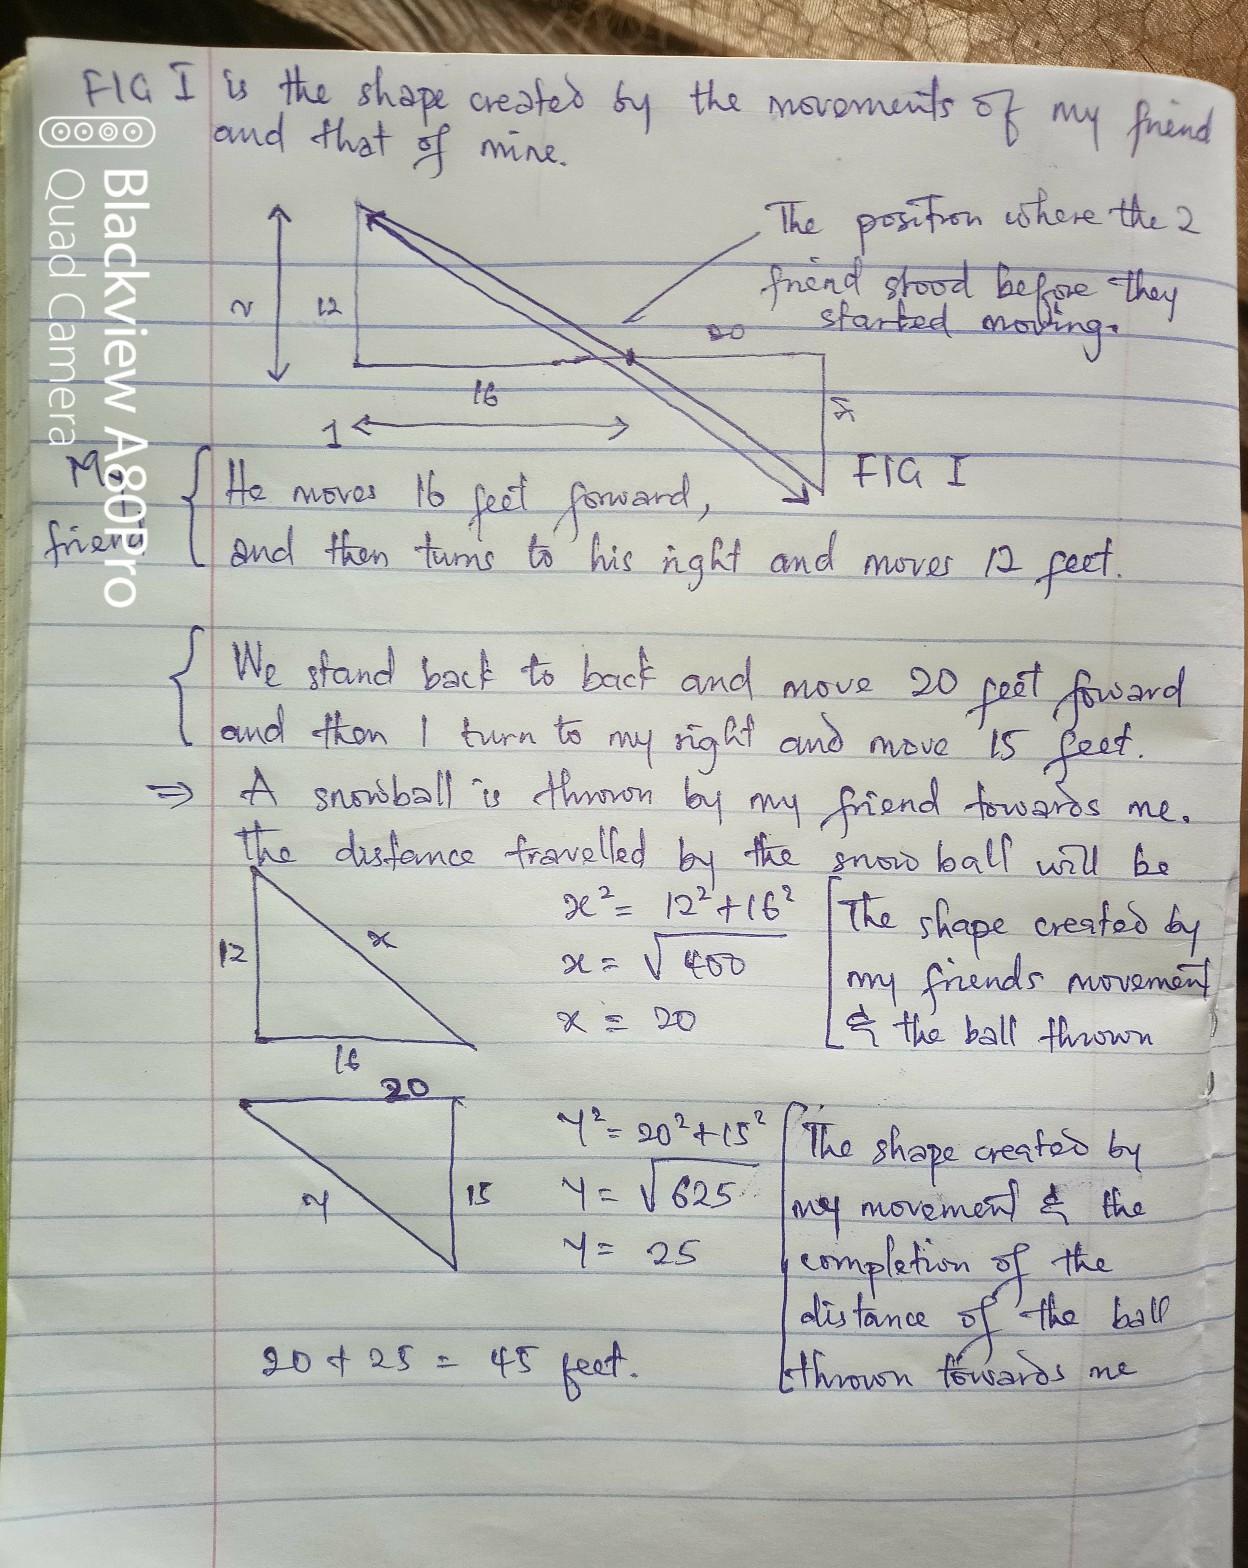 FIG I is the shape created by the movements of my friend
and that of mine.
The position where the 2
friend stood before they
started moving.
2
12
20
16
15
1
FIG I
My
friend
He moves 16 feet forward,
and then turns to his right and moves 12 feet.
We stand back to back and move 20 feet foward
and then I turn to my right and move 15 feet.
⇒ A snowball is thrown by my friend towards me.
The distance travelled by the snow ball will be
12
x
16
x² = 12² + 16²
x = √400
x = 20
The shape created by
my friends movement
& the ball thrown
20
y
15
y² = 20² + 15²
y = √625
y = 25
The shape created by
my movement & the
completion of the
distance of the ball
thrown towards me
20 + 25 = 45 feet.
Blackview A80Pro
Quad Camera